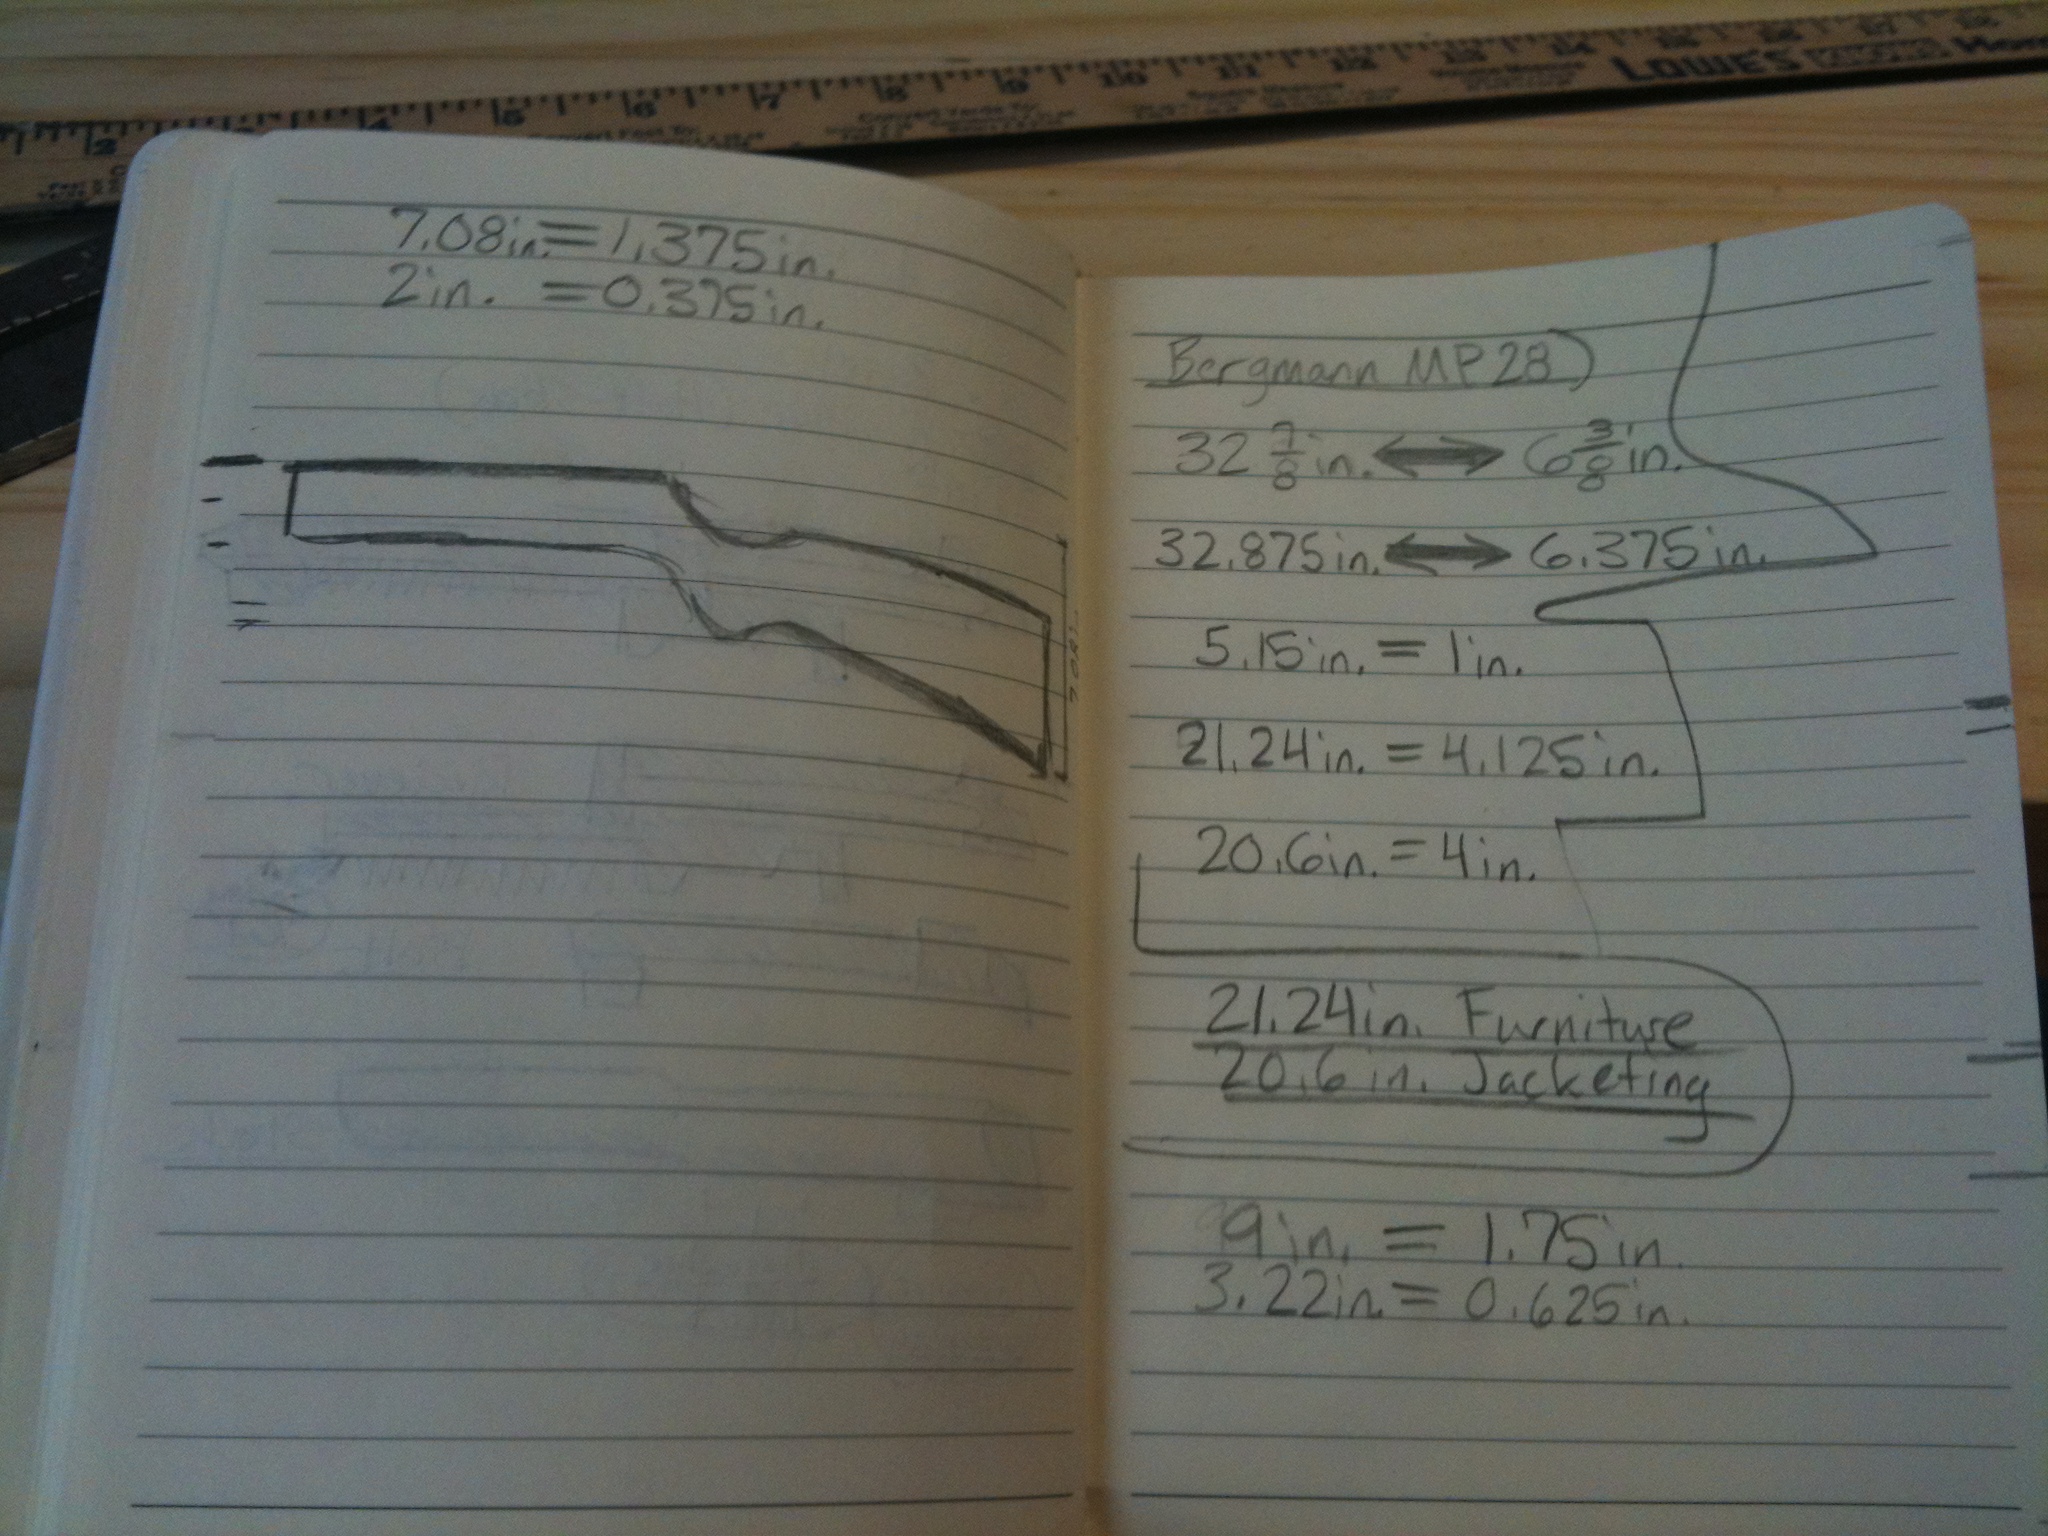 2 4 5 6 7 8 9 10 11 12 13 14 15 16 17 18
LOWE'S
7.08in. = 1.375in.
2in. = 0.375in.
Bergmann MP28)
32 7/8 in. ↔ 6 3/8 in.
32.875in. ↔ 6.375in.
5.15in. = 1in.
21.24in. = 4.125in.
20.6in. = 4in.
21.24in. Furniture
20.6in. Jacketing
9in. = 1.75in.
3.22in. = 0.625in.